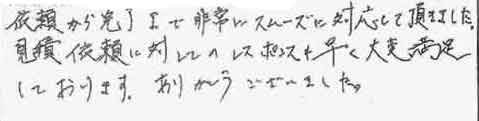 依頼から完了まで非常にスムーズに対応して頂きました。
見積依頼に対してのレスポンスも早く大変満足
しております。ありがとうございました。